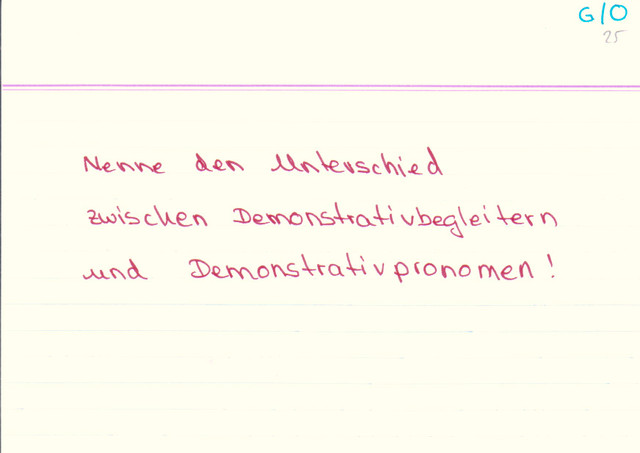 G/O
25
Nenne den Unterschied
zwischen Demonstrativbegleitern
und Demonstrativpronomen!